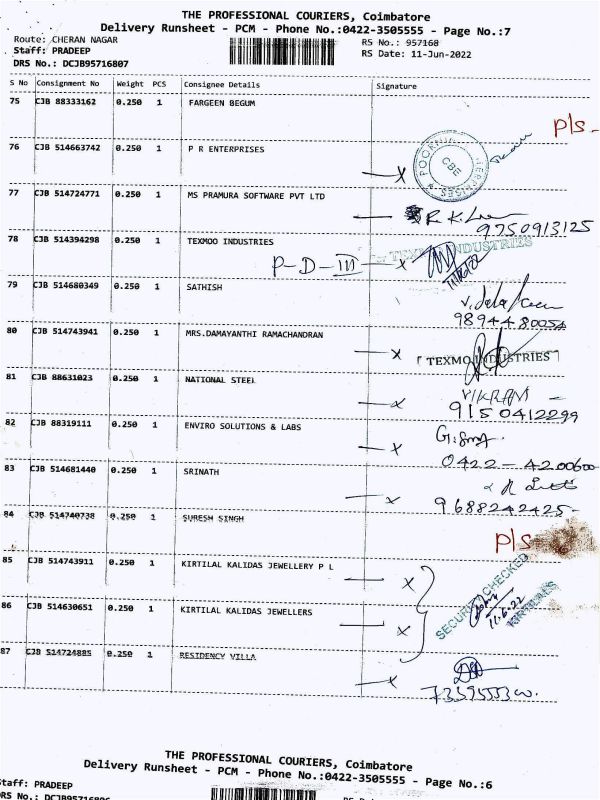 THE PROFESSIONAL COURIERS, Coimbatore
Delivery Runsheet - PCM - Phone No.:0422-3505555 - Page No.:7
Route: CHERAN NAGAR
RS No.: 957168
Staff: PRADEEP
RS Date: 11-Jun-2022
DRS No.: DCJB95716807
S No Consignment No Weight PCS Consignee Details Signature
75 CJB 88333162 0.250 1 FARGEEN BEGUM
P/S-
76 CJB 514663742 0.250 1 P R ENTERPRISES
CBE
77 CJB 514724771 0.250 1 MS PRAMURA SOFTWARE PVT LTD
9750913125
78 CJB 514394298 0.250 1 TEXMOO INDUSTRIES
TEXMO INDUSTRIES
P-D-III
79 CJB 514680349 0.250 1 SATHISH
9894480054
80 CJB 514743941 0.250 1 MRS.DAMAYANTHI RAMACHANDRAN
TEXMO INDUSTRIES
81 CJB 88631023 0.250 1 NATIONAL STEEL
VIKRAM
9150412299
82 CJB 88319111 0.250 1 ENVIRO SOLUTIONS & LABS
0422-4200600
83 CJB 514681440 0.250 1 SRINATH
9688242425-
84 CJB 514740738 0.250 1 SURESH SINGH
P/S-
85 CJB 514743911 0.250 1 KIRTILAL KALIDAS JEWELLERY P L
SECURITY CHECKED
11.6.22
KIRTILALS
86 CJB 514630651 0.250 1 KIRTILAL KALIDAS JEWELLERS
87 CJB 514724885 0.250 1 RESIDENCY VILLA
THE PROFESSIONAL COURIERS, Coimbatore
Delivery Runsheet - PCM - Phone No.:0422-3505555 - Page No.:6
Staff: PRADEEP
DRS No.: DCJB95716806